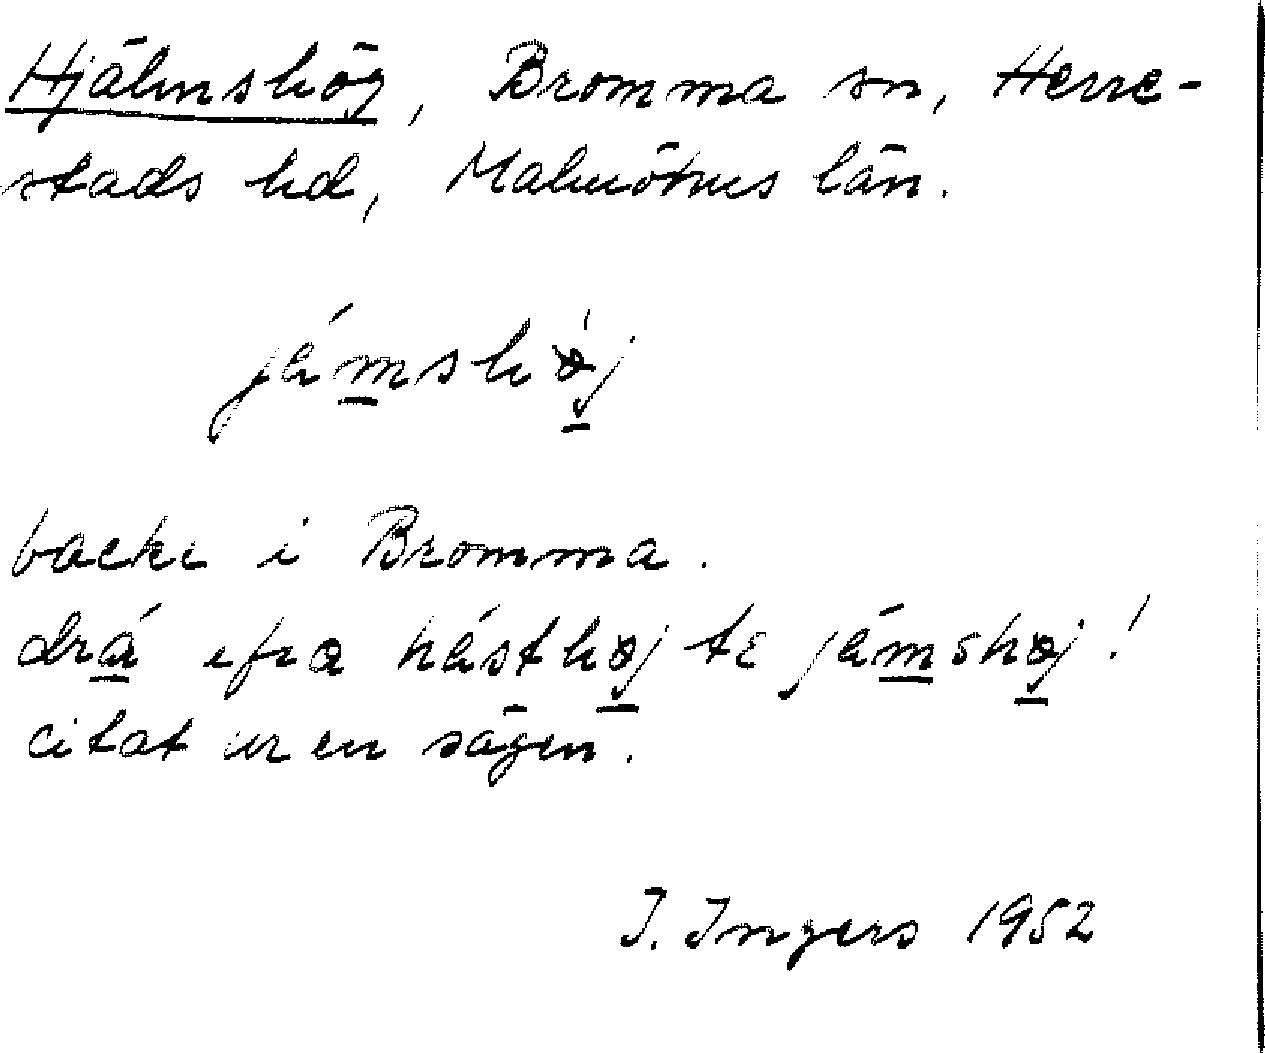 Hjälmshög, Bromma sn, Herre-
stads hd, Malmöhus län.
jámshǿj
backe i Bromma.
drá ifra hásthøj te jámshøj!
citat ur en sägen.
I. Ingers 1952